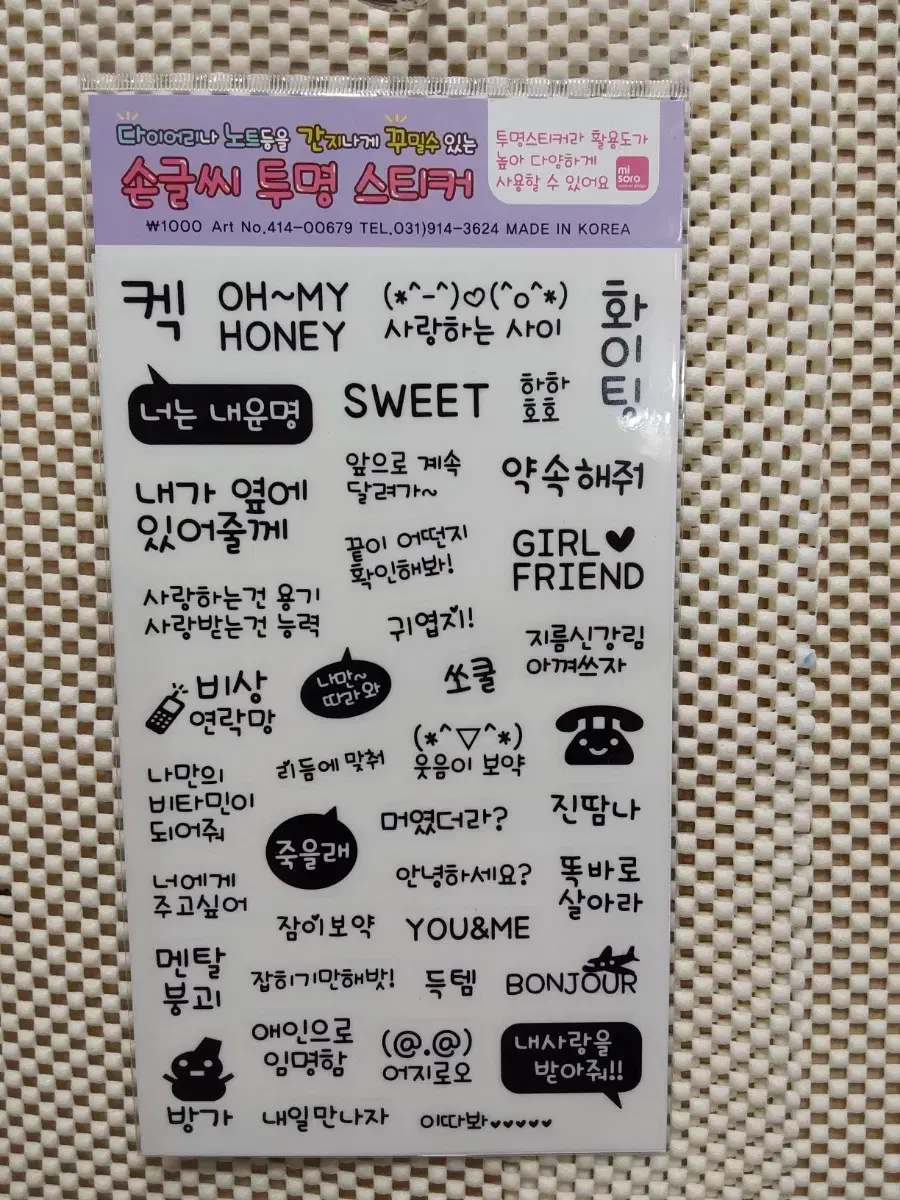 다이어리나 노트등을 간지나게 꾸밀수 있는
손글씨 투명 스티커
투명스티커라 활용도가
높아 다양하게
사용할 수 있어요
mi
soro
₩1000 Art No.414-00679 TEL.031)914-3624 MADE IN KOREA
켁
OH~MY
HONEY
(*^-^)♡(^o^*)
사랑하는 사이
화
이
팅
너는 내운명
SWEET
하하
호호
앞으로 계속
달려가~
약속해줘
내가 옆에
있어줄께
끝이 어떤지
확인해봐!
GIRL♥
FRIEND
사랑하는건 용기
사랑받는건 능력
귀엽지!
지름신강림
아껴쓰자
비상
연락망
나만~
따라와
쏘쿨
(*^▽^*)
웃음이 보약
리듬에 맞춰
나만의
비타민이
되어줘
머였더라?
진땀나
죽을래
안녕하세요?
똑바로
살아라
너에게
주고싶어
잠이보약
YOU&ME
멘탈
붕괴
잡히기만해밧!
득템
BONJOUR
애인으로
임명함
(@.@)
어지로오
내사랑을
받아줘!!
방가
내일만나자
이따봐♥♥♥♥♥